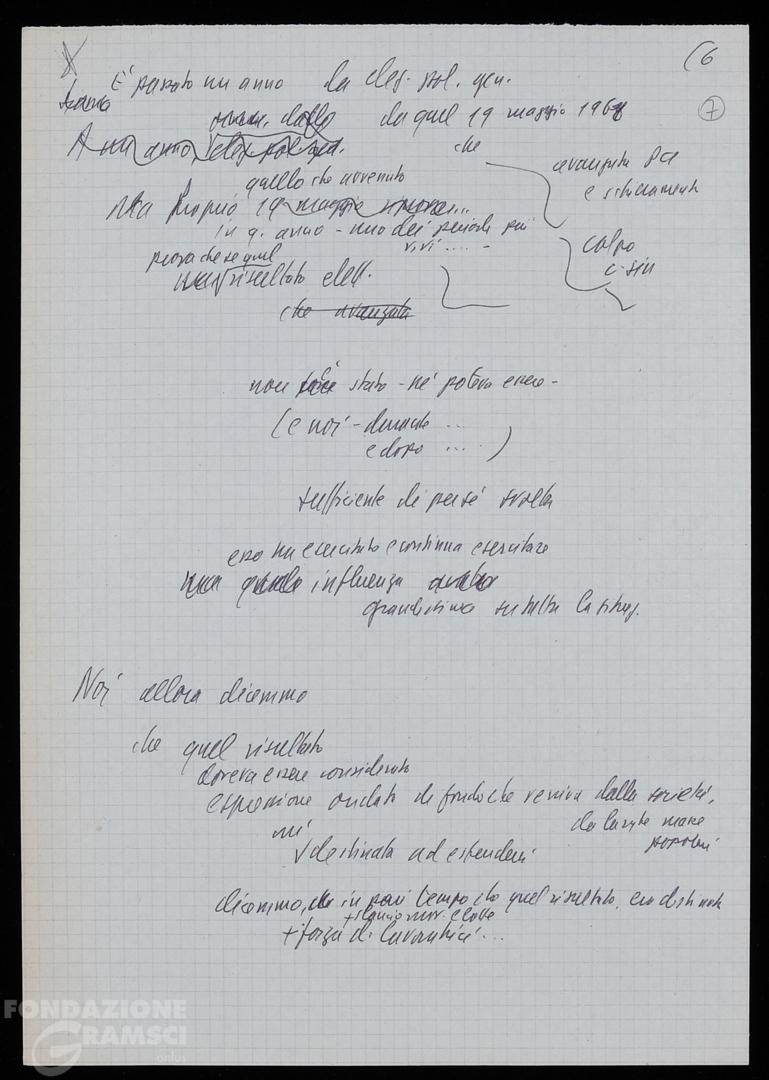 (6
7
È passato un anno da elez. pol. gen.
da quel 19 maggio 1968
A un anno elez.
che
avanzata PCI
e slittamento
quello che avvenuto
Ma proprio 19 maggio
in q. anno - uno dei periodi più
vivi .... -
colpo
c. sin
prova che se quel
risultato elett.
che avanzata
non è stato - né poteva essere -
(e noi - durante ...
e dopo .... )
sufficiente di per sé svolta
esso ha esercitato e continua esercitare
una influenza
grandissima su tutta la situaz.
Noi allora dicemmo
che quel risultato
doveva essere considerato
espressione ondata di fondo che veniva dalla società,
da larghe masse
popolari
destinata ad estendersi
dicemmo, in pari tempo che quel risultato, era destinato
+ slancio mov. e lotte
+ forza di lavoratrici ...
FONDAZIONE
GRAMSCI
onlus